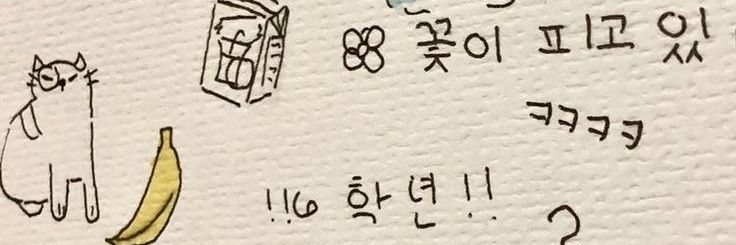 꽃이 피고 있
ㅋㅋㅋㅋ
!!6학년!!
?